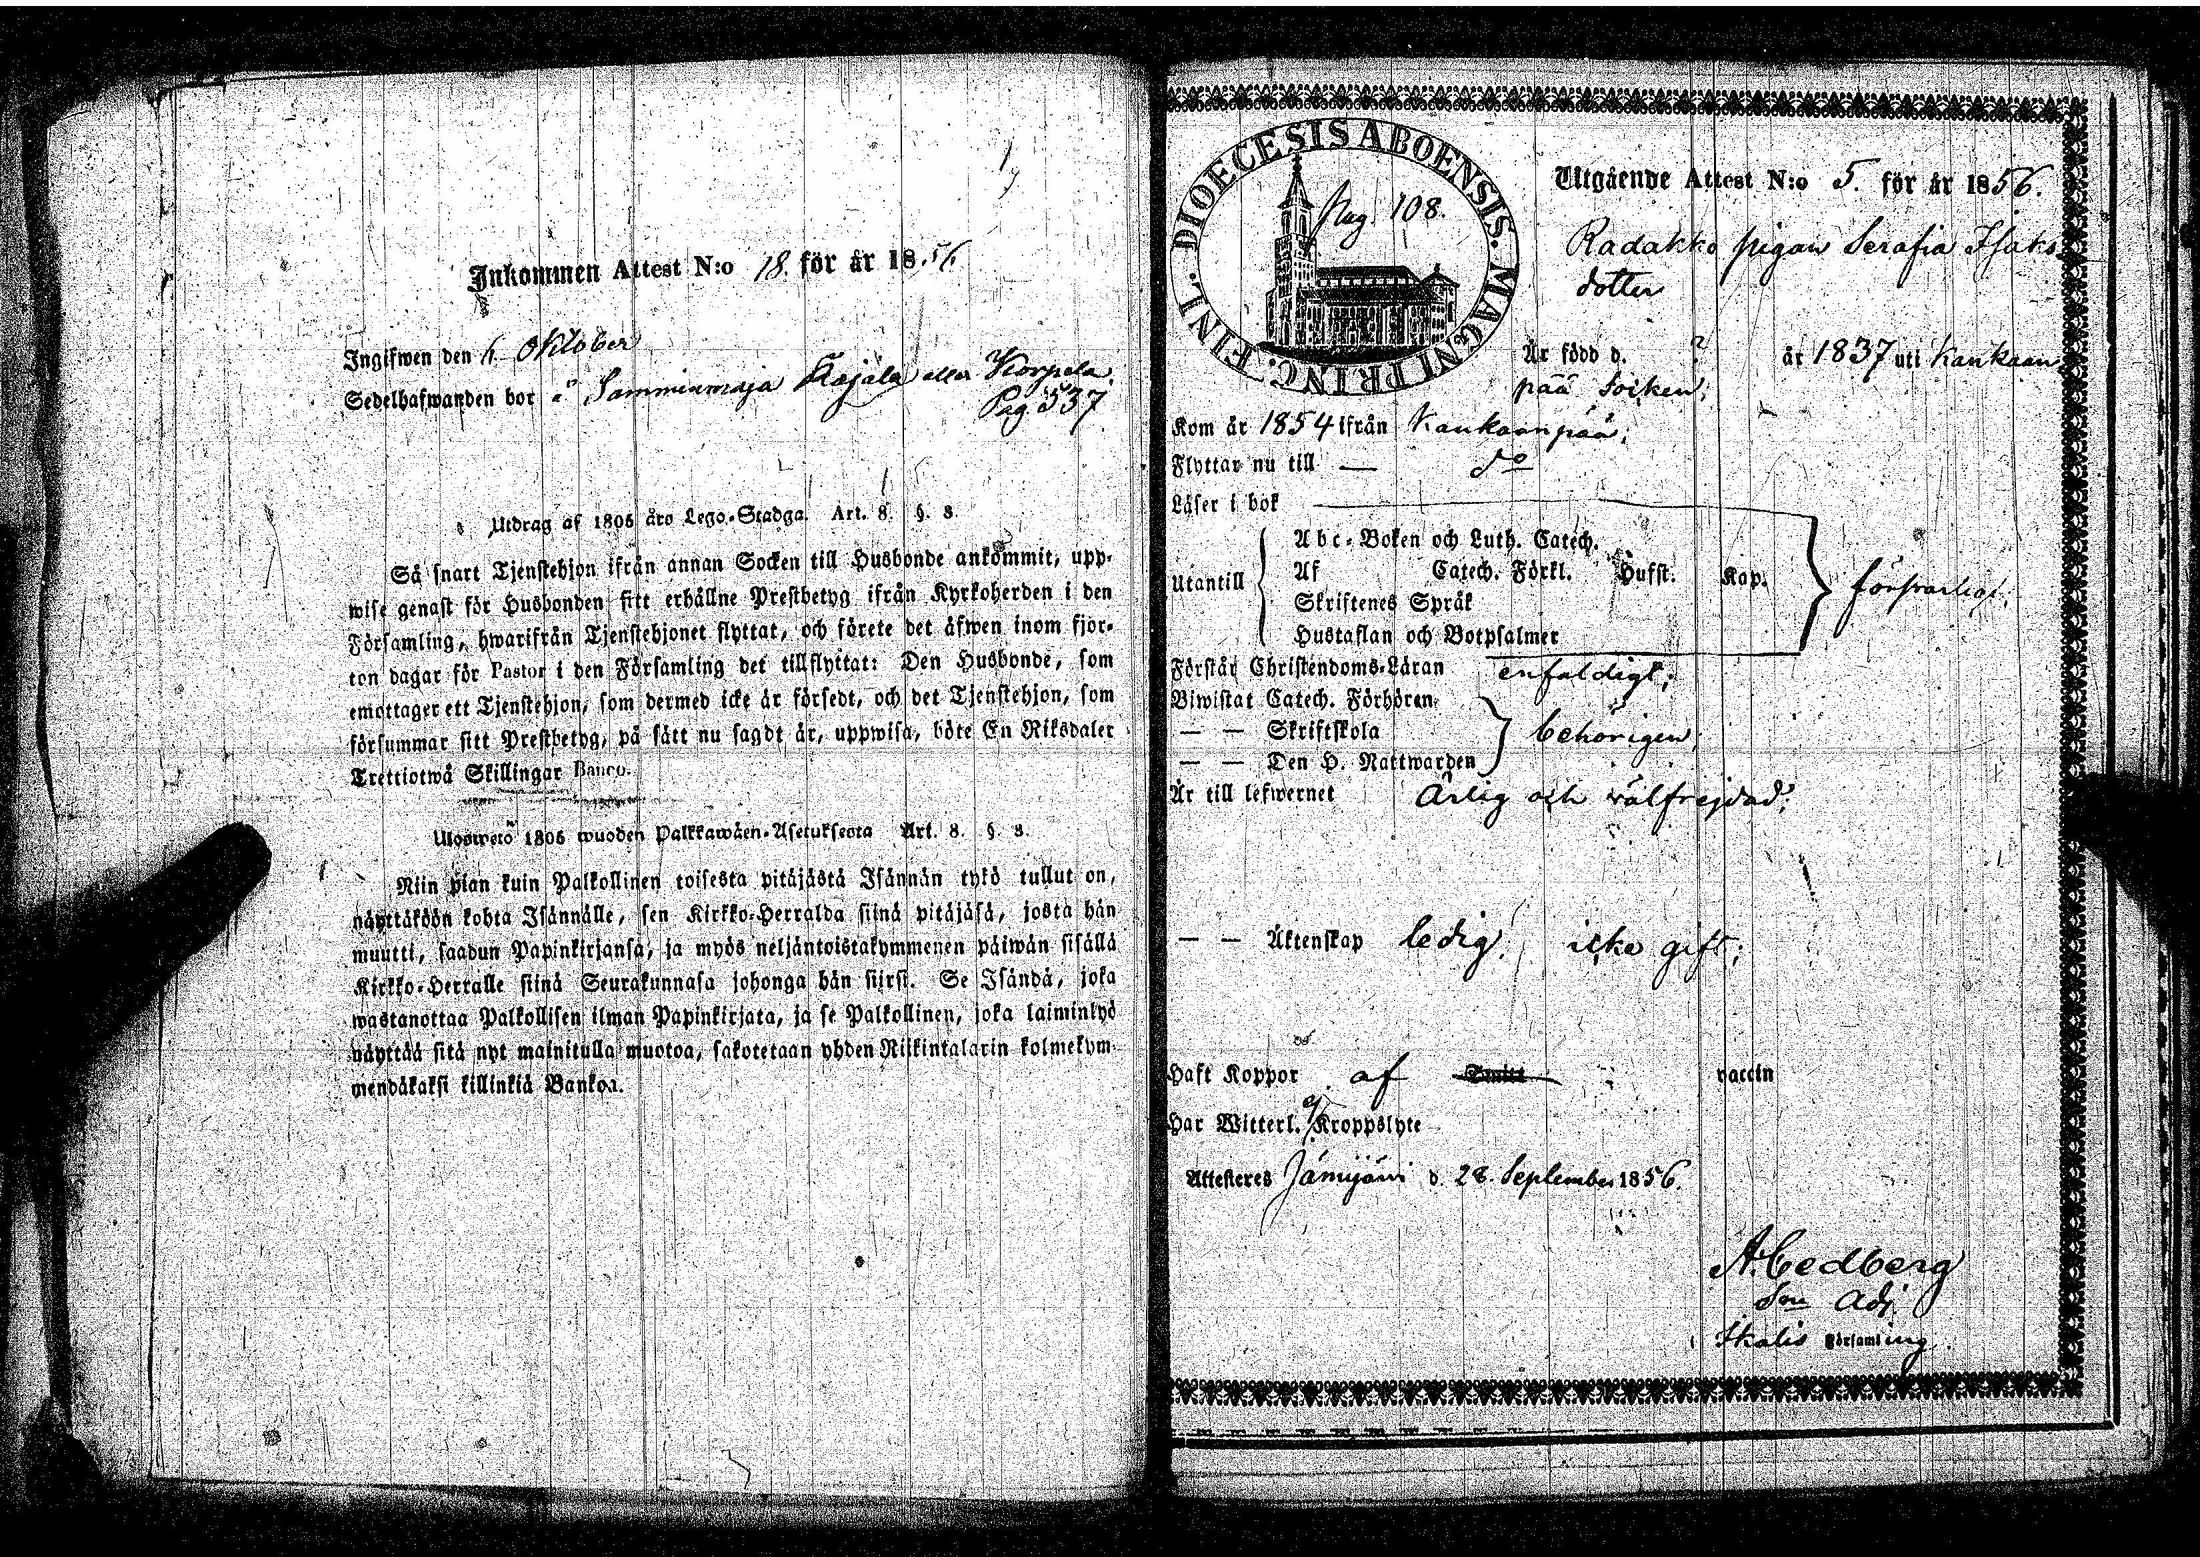 Inkommen Attest N:o 18. för år 1856
Ingifwen den 6. Oktober
Sedelhafwanden bor å Samminmaja Kojala eller Korpela.
Pag. 537
Utdrag af 1805 års Lego-Stadga. Art. 8. §. 8.
Så snart Tjenstehjon ifrån annan Socken till Husbonde ankommit, upp-
wise genast för Husbonden sitt erhållne Prestbetyg ifrån Kyrkoherden i den
Församling, hwarifrån Tjenstehjonet flyttat, och förete det äfwen inom fjor-
ton dagar för Pastor i den Församling det tillflyttat: Den Husbonde, som
emottager ett Tjenstehjon, som dermed icke är försedt, och det Tjenstehjon, som
försummar sitt Prestbetyg, på sätt nu sagdt är, uppwisa, böte En Riksdaler
Trettiotwå Skillingar Banco.
Ulosweto 1805 wuoden Palkkawäen-Asetuksesta Art. 8. §. 8.
Niin pian kuin Palkollinen toisesta pitäjästä Isännän tykö tullut on,
näyttäköön kohta Isännälle, sen Kirkko-Herralda siinä pitäjäsä, josta hän
muutti, saadun Papinkirjansa, ja myös neljäntoistakymmenen päiwän sisällä
Kirkko-Herralle siinä Seurakunnasa johonga hän siirsi. Se Isändä, joka
wastanottaa Palkollisen ilman Papinkirjata, ja se Palkollinen, joka laiminlyö
näyttää sitä nyt mainitulla muotoa, sakotetaan yhden Riikintalarin kolmekym-
mendäkaksi killinkiä Bankoa.
DIOECESIS ABOENSIS. MAGNI PRINC. FINL.
Pag. 108.
Utgående Attest N:o 5. för år 1856.
Radakko pigan Serafia Isaks
dotter
Är född d. ? år 1837 uti Kankaan
pää Socken;
Kom år 1854 ifrån Kankaanpää;
Flyttar nu till — do
Läser i bok
Utantill
Abc-Boken och Luth. Catech.
Af Catech. Förkl. Hufst. Kap.
Skriftenes Språk
Hustaflan och Botpsalmer
försvarligt;
Förstår Christendoms-Läran enfaldigt;
Biwistat Catech. Förhören
— — Skriftskola behörigen;
— — Den H. Nattwarden
Är till lefwernet Ärlig och välfrejdad;
— — Äktenskap ledig, icke gift;
Haft Koppor af Smitt vaccin
Har Witterl. ej Kroppslyte
Attesteres Jämijärvi d. 28. September 1856.
A. Cedberg
Adj.
Ikalis Församling.